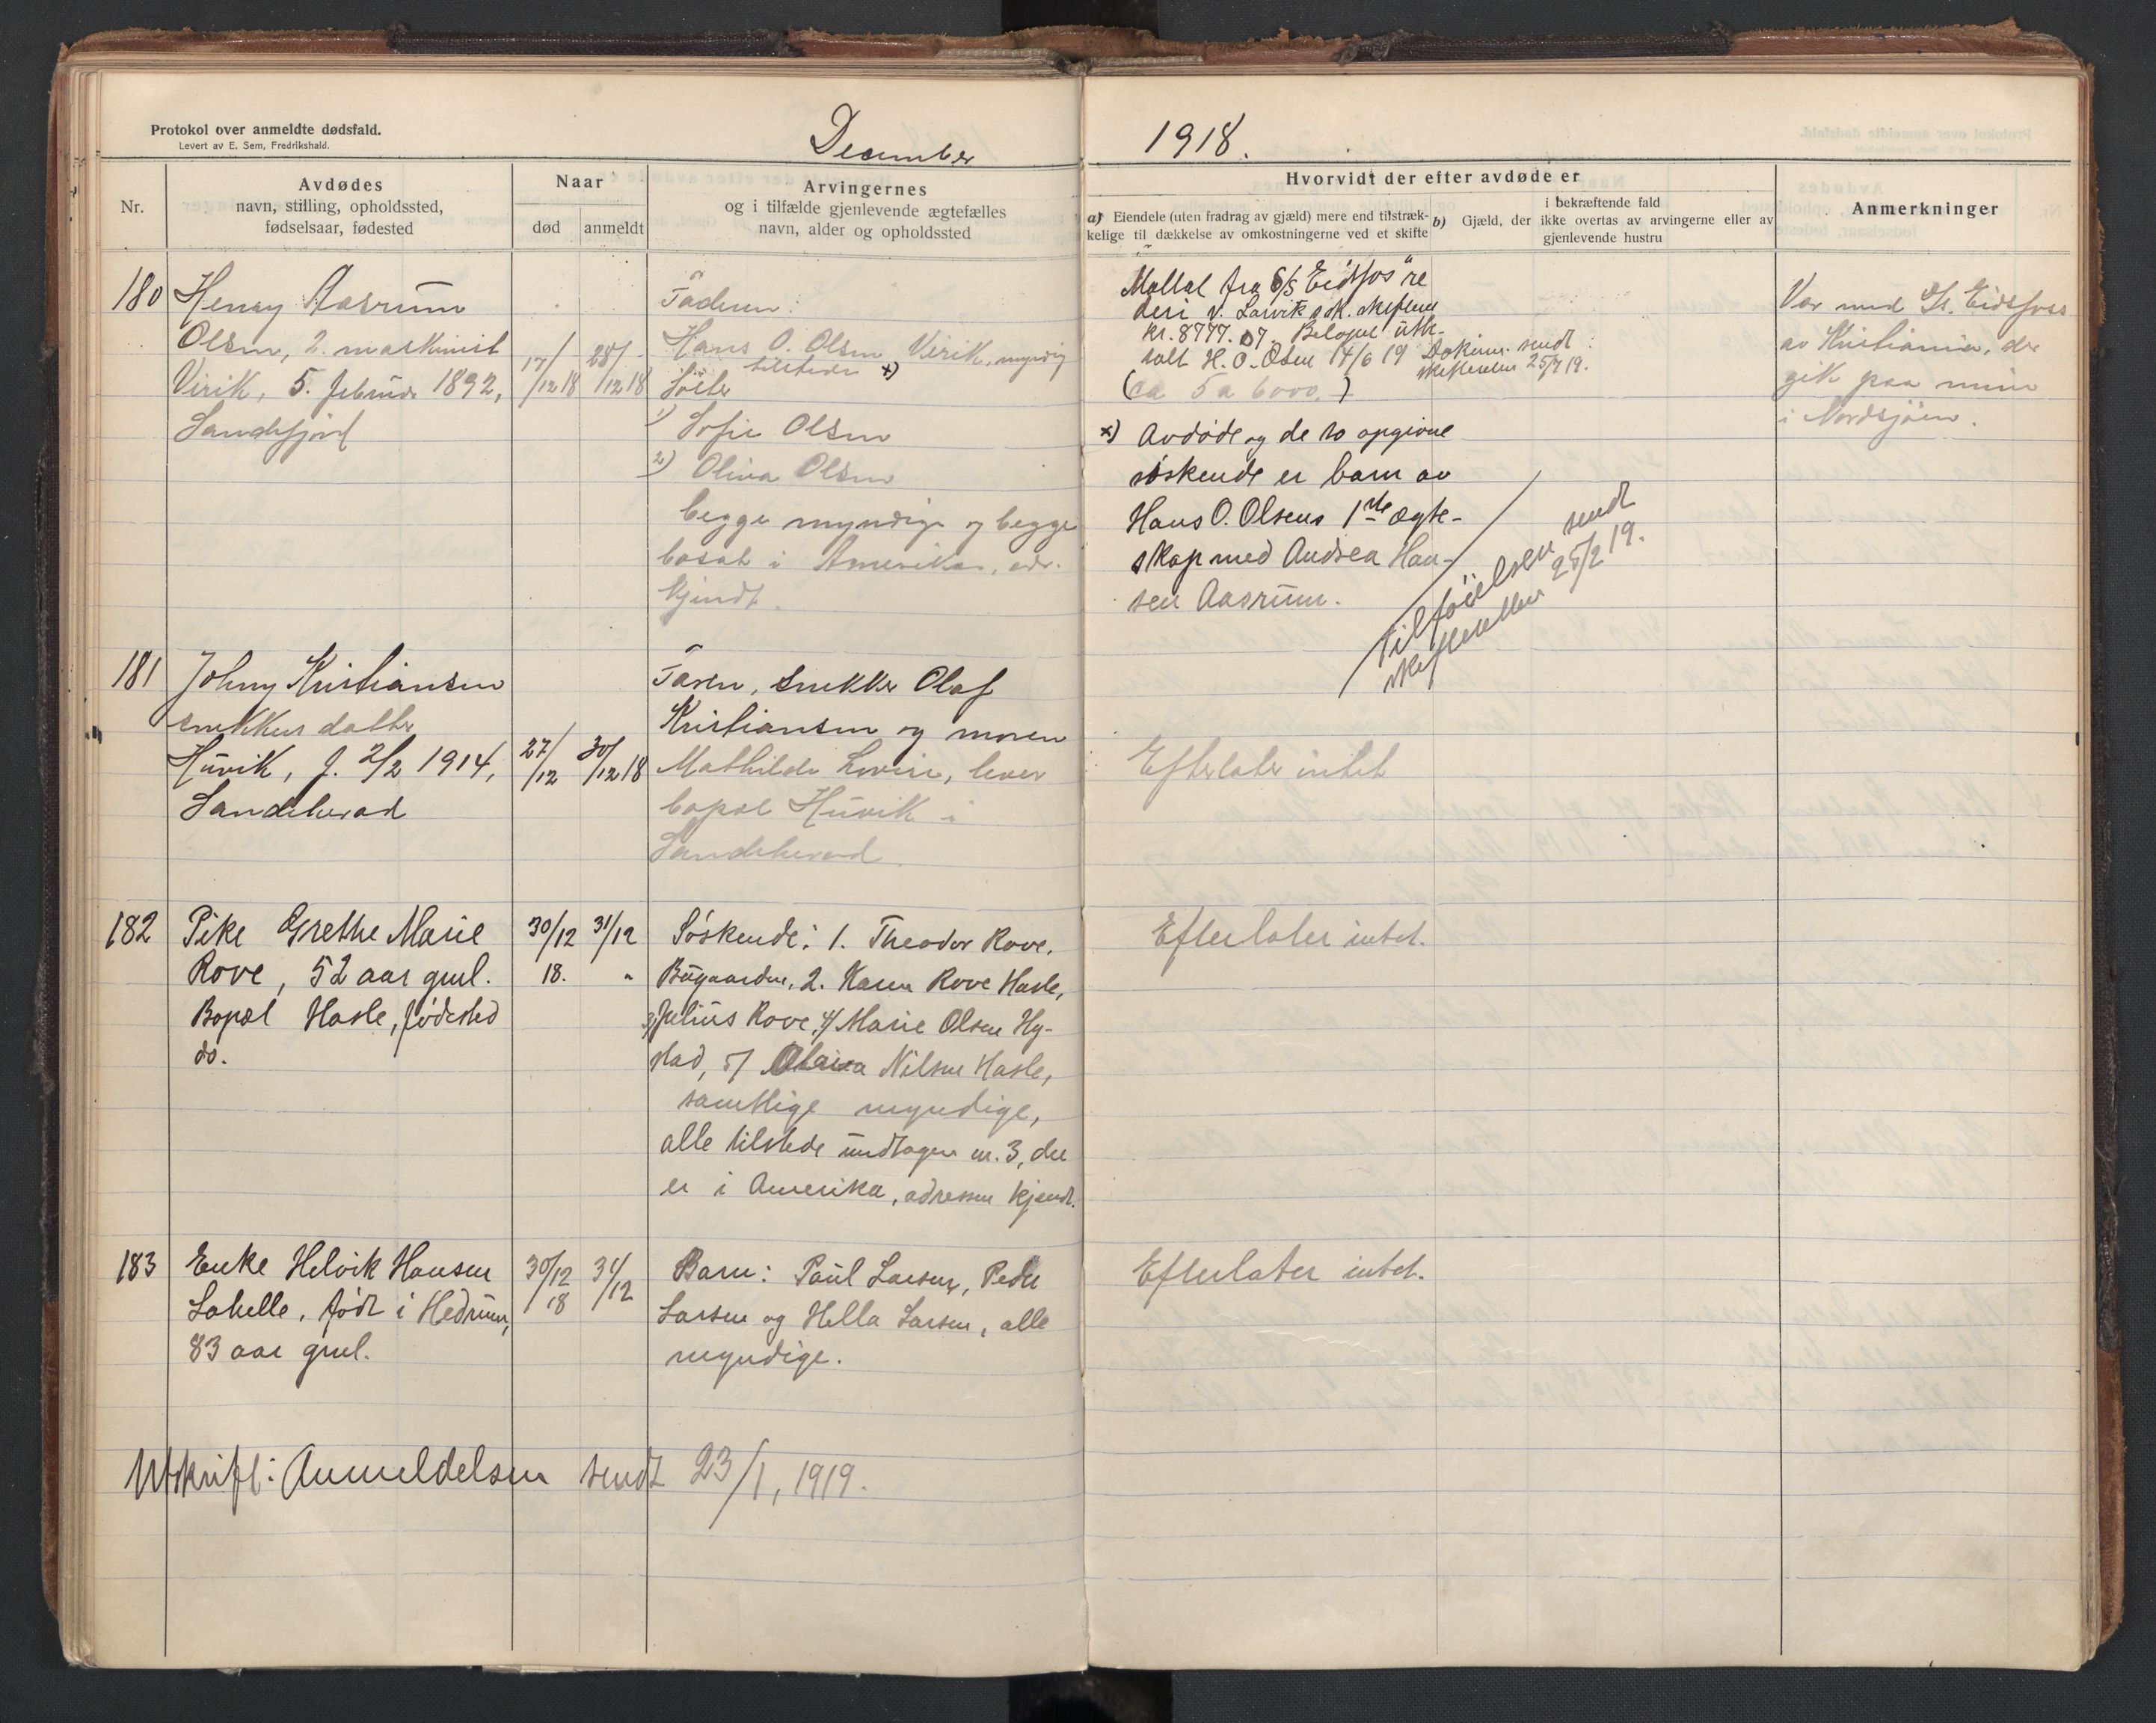 Protokol over anmeldte dødsfald.
Levert av E. Sem, Fredrikshald.
December 1918.
Nr.
Avdødes
navn, stilling, opholdssted,
fødselsaar, fødested
Naar
død
anmeldt
Arvingernes
og i tilfælde gjenlevende ægtefælles
navn, alder og opholdssted
Hvorvidt der efter avdøde er
a) Eiendele (uten fradrag av gjæld) mere end tilstræk-
kelige til dækkelse av omkostningerne ved et skifte
i bekræftende fald
b) Gjæld, der ikke overtas av arvingerne eller av
gjenlevende hustru
Anmerkninger
180
Henry Aasrum
Olsen, 2. maskinist
Virik, 5. februar 1892,
Sandefjord
17/12 18
28/12 18
Faderen:
Hans O. Olsen Virik, myndig
tilstede x)
Søstre
1) Sofie Olsen
2) Oliva Olsen
begge myndige og begge
bosat i Amerika, adr.
kjendt.
Mottat fra S/S "Eidsfos" re
deri v. Larvik
kr. 8777.07. Beløpet utb-
talt H. O. Olsen 14/6 19
Dokum. sendt
25/7 19.
(ca 5 a 6000.)
x) Avdøde og de to opgivne
søskende er barn av
Hans O. Olsens 1ste ægte-
skap med Andrea Han-
sen Aasrum.
Tilføielsen sendt
skifteretten 25/2 19.
Var med S/S. Eidsfoss
av Kristiania, der
gik paa mine
i Nordsjøen.
181
Johny Kristiansen
snekkers datter
Huvik, f. 2/2 1914,
Sandeherad
27/12
30/12 18
Faren, snekker Olaf
Kristiansen og moren
Mathilde Lovise, lever
bopæl Huvik i
Sandeherad.
Efterlater intet
182
Pike Grethe Marie
Rove, 52 aar gml.
Bopæl Hasle, fødested
do.
30/12
18.
31/12
"
Søskende: 1. Theodor Rove,
Bugaarden, 2. Karen Rove Hasle,
3/ Julius Rove, 4/ Marie Olsen Hy-
stad, 5/ Nilsen Hasle,
samtlige myndige,
alle tilstede undtagen nr. 3, der
er i Amerika, adressen kjendt.
Efterlater intet.
183
Enke Helvik Hansen
Lahelle, født i Hedrum,
83 aar gml.
30/12
18
31/12
Barn: Paul Larsen, Peder
Larsen og Hella Larsen, alle
myndige.
Efterlater intet.
Utskrift: Anmeldelsen sendt 23/1, 1919.